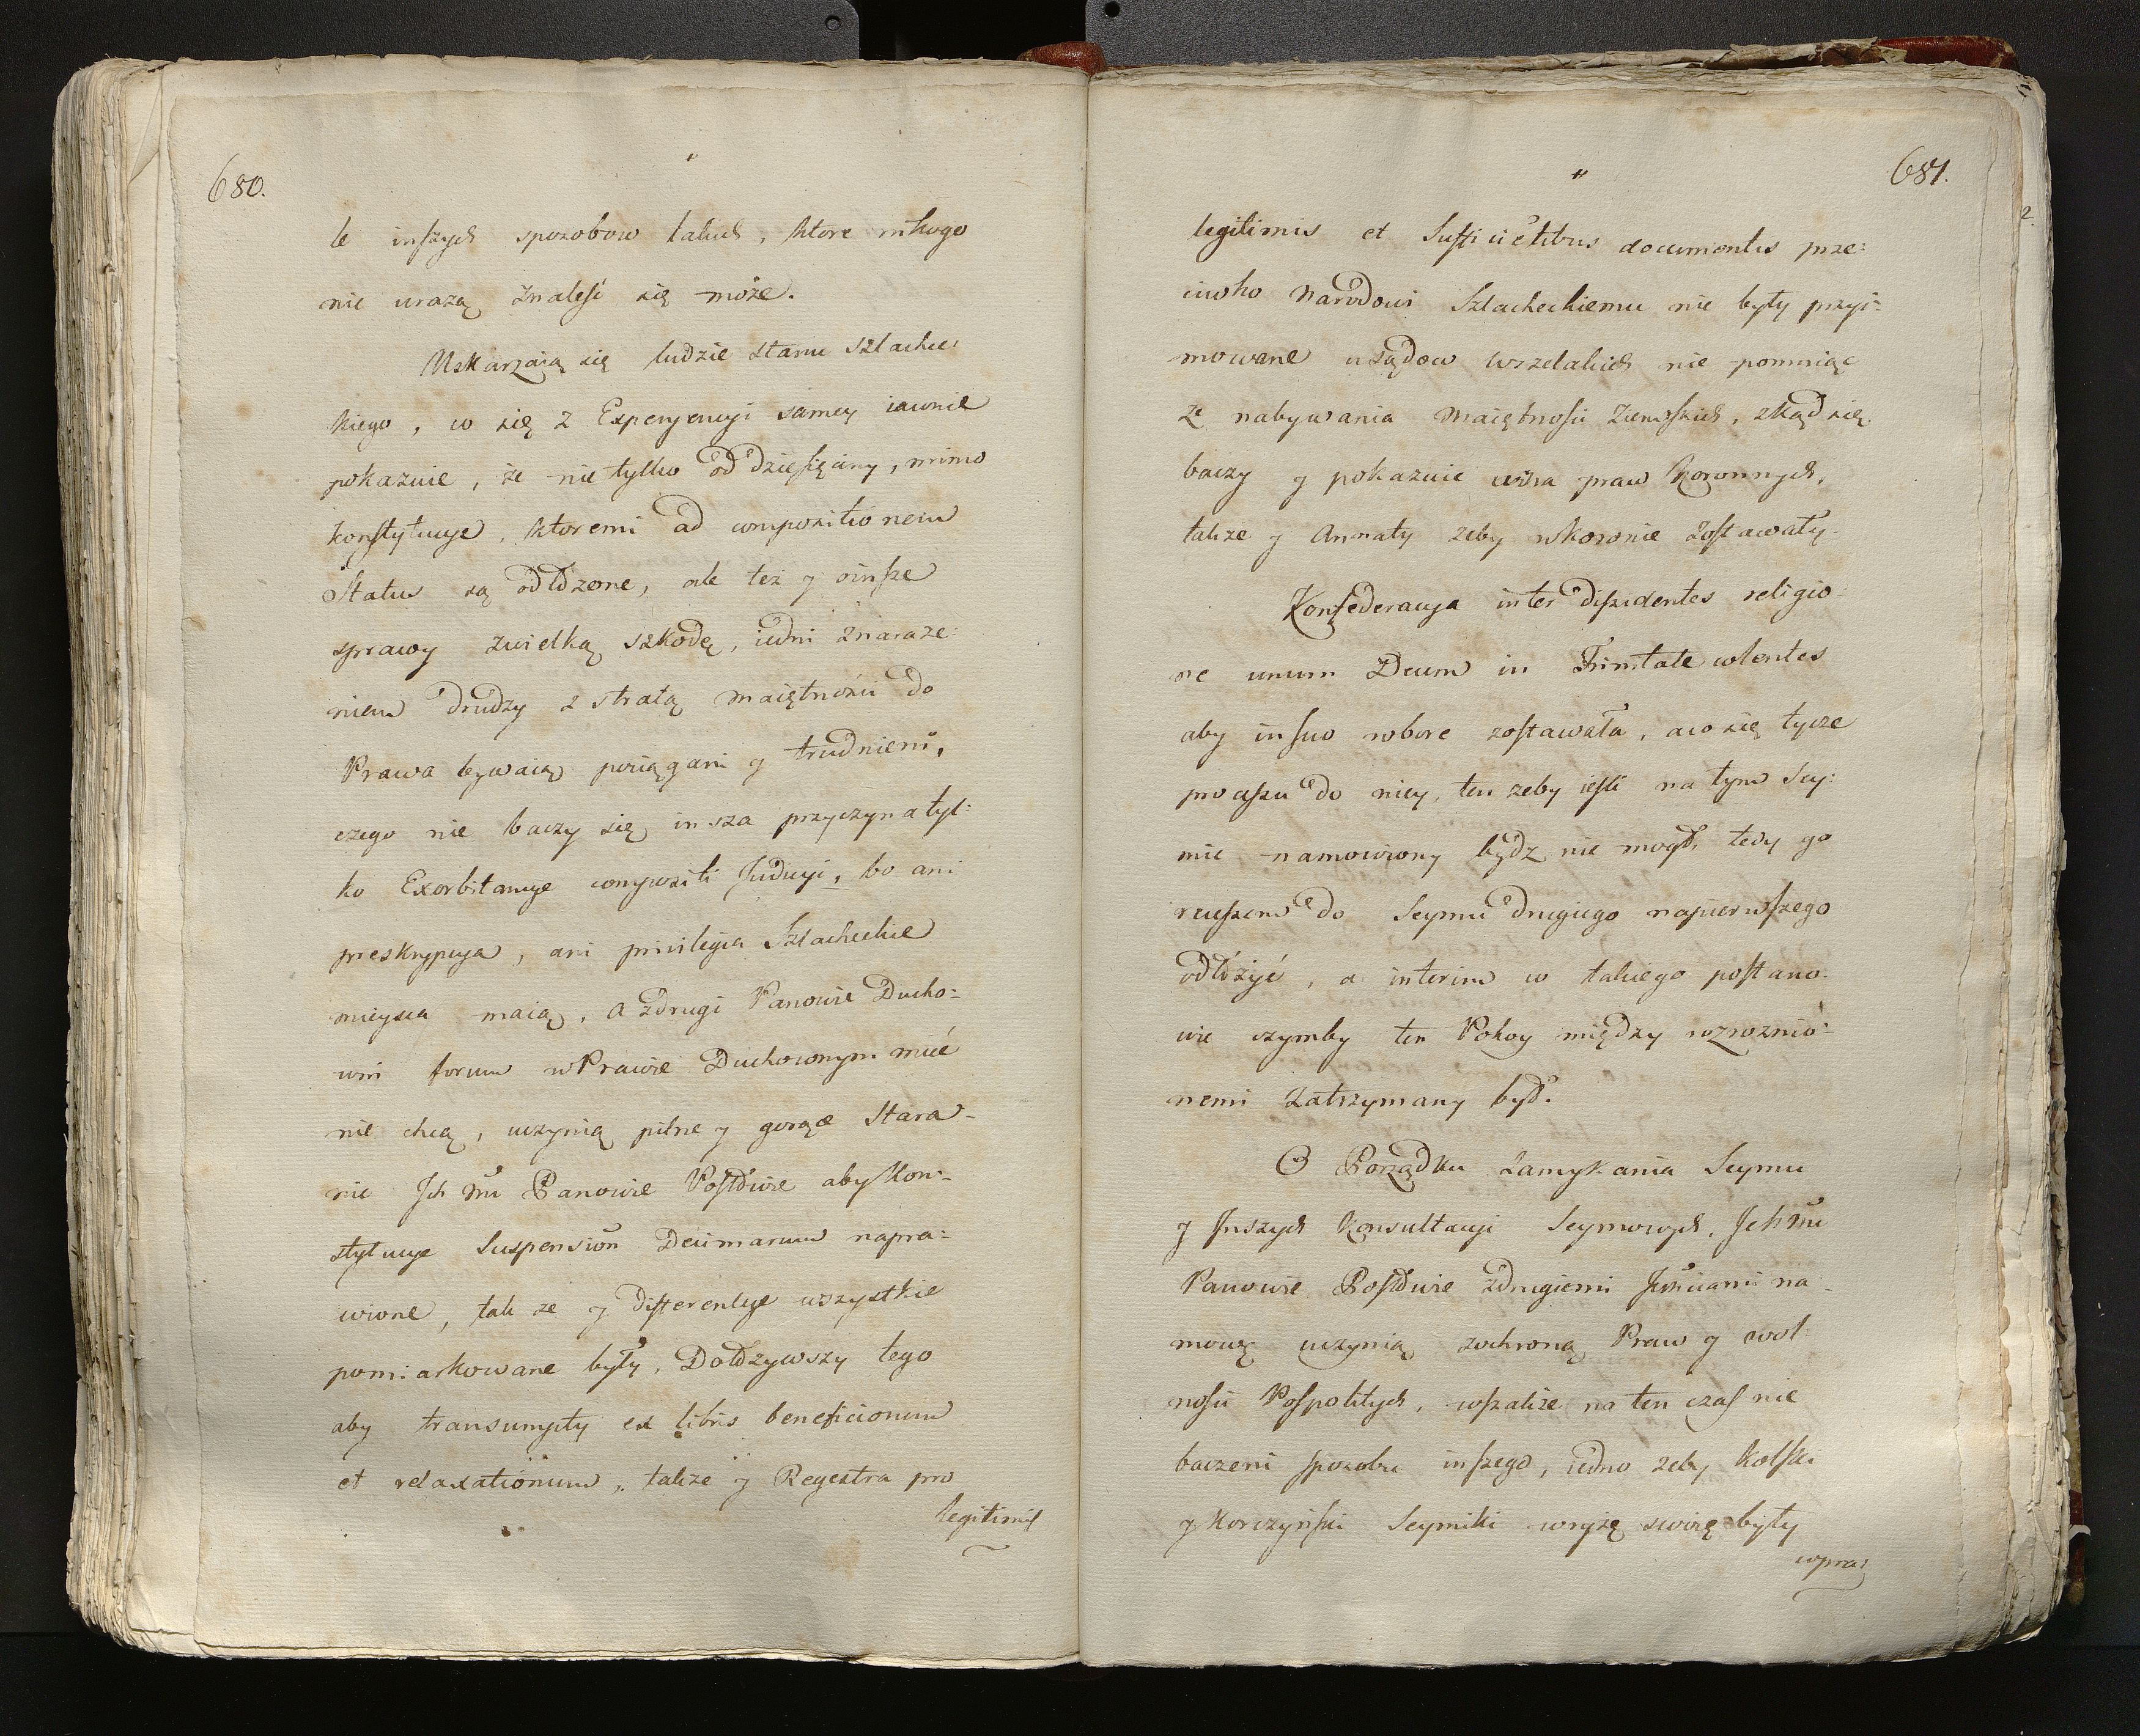 680.
le inszych sposobow takich, które nikogo
nie urażą znaleść się może.
Uskarzaią się ludzie stanu szlachec:
kiego, co się z Experyencyi samey iawnie
pokazuie, że nie tylko od dziesięciny, mimo
konstytucye, ktoremi ad compositionem
Status są odłożone, ale też y oinsze
sprawy zwielką szkodą, iedni znaraże:
niem drudzy z stratą maiętności do
Prawa bywaią pociągani y trudnieni,
czego nie baczy się insza przyczyna tyl:
ko Exorbitancye compositi Judicyi, bo ani
preskrypcya, ani privilegia Szlacheckie
mieysca maią, a zdrugi Panowie Ducho:
wni forum w Prawie Duchownym mieć
nie chcą, uczynią pilne y gorące stara-
nie Ich Mć Panowie Posłowie aby Kon-
stytucye Suspension Decimarum napra:
wione, tak ze y differentye wszystkie
pomiarkowane były. Dołożywszy tego
aby transumpty ex libris beneficiorum
et relaxationum, takze y Regestra pro
legitimis
681.
legitimis et Sufficientibus documentis prze:
ciwko Narodowi Szlacheckiemu nie były przyi:
mowane usądow wszelakich nie pomniąc
ze nabywania maiętnosci Ziemskich, zkąd się
baczy y pokazuie wina praw Koronnych,
takze y Annaty zeby wkoronie zostawały.
Konfederacya inter dissidentes religio-
ne unum Deum in Trinitate colentes
aby insuo robore zostawała, aco się tycze
processu do niey, ten zeby iesli na tym Sey:
mie namowiony bydz nie mogł, tedy go
recessem do Seymu drugiego napierwszego
odłożyć, a interim co takiego postano-
wic czymby ten Pokoy między rozroznio-
nemi zatrzymany był.
O Porządku zamykania Seymu
y Inszych Konsultacyi Seymowych, Ich Mć
Panowie Posłowie zdrugiemi Ichmciami na-
mowę uczynią zochroną Praw y wol-
nosci Pospolitych, wszakże na ten czas nie
baczemi sposobu inszego, iedno zeby Kolski
y Korczyński Seymiki wryzę swoię były
wpra: